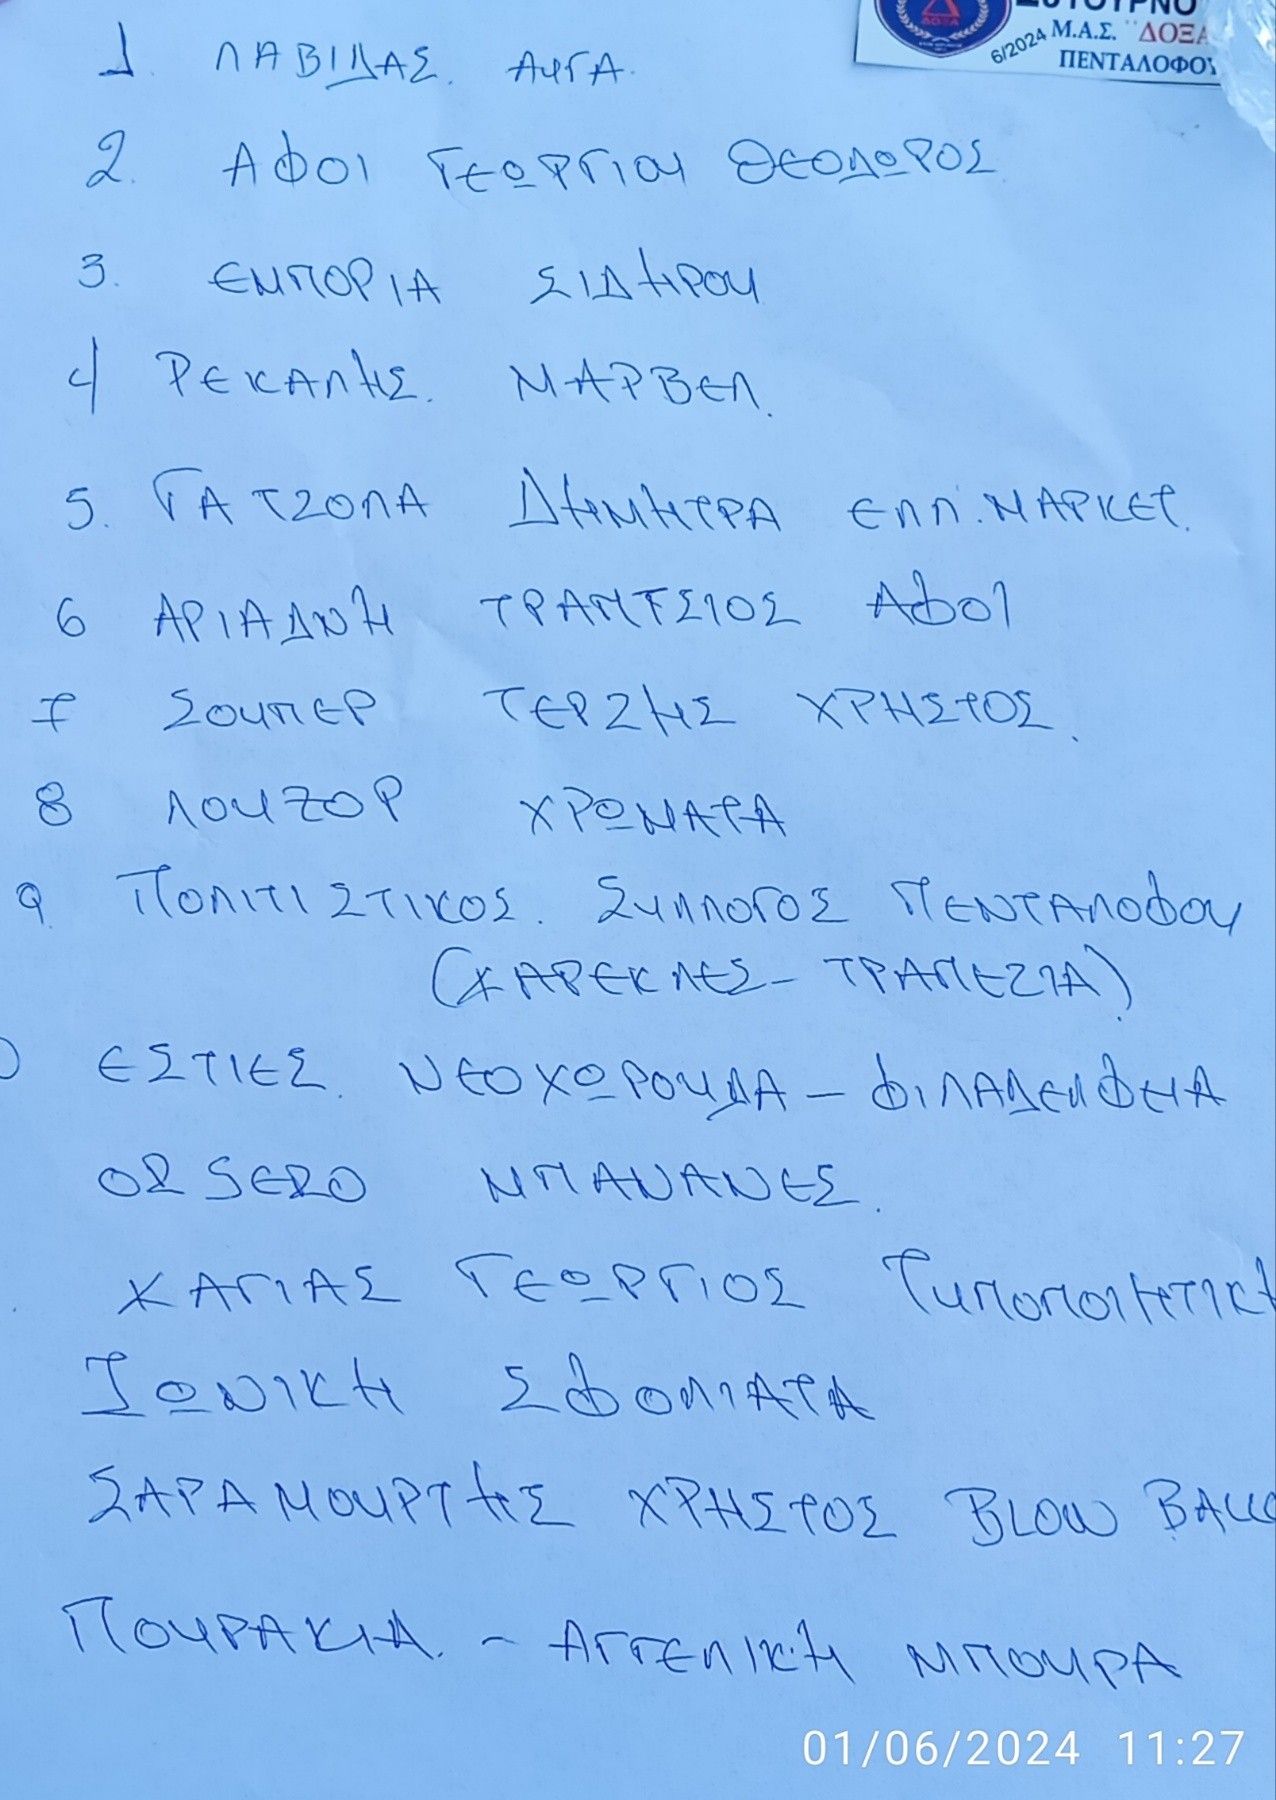 ΤΟΥΡΝΟ
6/2024 Μ.Α.Σ. "ΔΟΞΑ
ΠΕΝΤΑΛΟΦΟΥ
ΔΟΞΑ
1. ΛΑΒΙΔΑΣ. ΑΥΓΑ.
2. ΑΦΟΙ ΓΕΩΡΓΙΟΥ ΘΕΟΔΩΡΟΣ
3. ΕΜΠΟΡΙΑ ΣΙΔΗΡΟΥ
4 ΡΕΚΑΛΗΣ. ΜΑΡΒΕΛ.
5. ΓΑΤΖΟΛΑ ΔΗΜΗΤΡΑ ΕΛΛ. ΜΑΡΚΕΤ.
6 ΑΡΙΑΔΝΗ ΤΡΑΠΤΣΙΟΣ ΑΦΟΙ
7 ΣΟΥΠΕΡ ΤΕΡΖΗΣ ΧΡΗΣΤΟΣ.
8 ΛΟΥΖΟΡ ΧΡΩΜΑΤΑ
9 ΠΟΛΙΤΙΣΤΙΚΟΣ. ΣΥΛΛΟΓΟΣ ΠΕΝΤΑΛΟΦΟΥ
(ΚΑΡΕΚΛΕΣ - ΤΡΑΠΕΖΙΑ)
0 ΕΣΤΙΕΣ. ΝΕΟΧΩΡΟΥΔΑ - ΦΙΛΑΔΕΛΦΕΙΑ
ORSERO ΜΠΑΝΑΝΕΣ.
ΚΑΓΙΑΣ ΓΕΩΡΓΙΟΣ ΤΥΠΟΠΟΙΗΤΙΚΗ
ΙΩΝΙΚΗ ΣΦΟΛΙΑΤΑ
ΣΑΡΑΜΟΥΡΤΗΣ ΧΡΗΣΤΟΣ BLOW BALLO
ΠΟΥΡΑΚΙΑ. - ΑΓΓΕΛΙΚΗ ΜΠΟΥΡΑ
01/06/2024 11:27